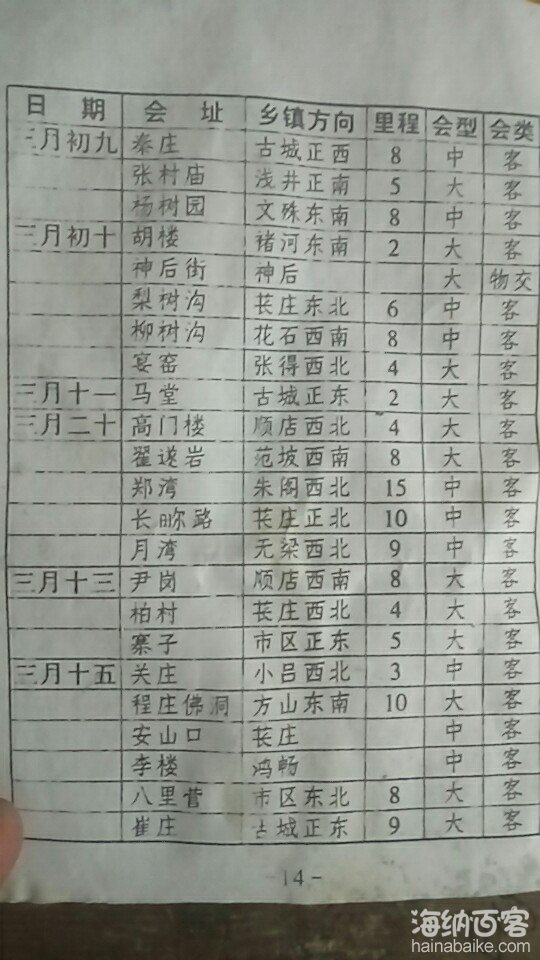 日 期 会 址 乡镇方向 里程 会型 会类
三月初九 秦庄 古城正西 8 中 客
张村庙 浅井正南 5 大 客
杨树园 文殊东南 8 中 客
三月初十 胡楼 褚河东南 2 大 客
神后街 神后 大 物交
梨树沟 苌庄东北 6 中 客
柳树沟 花石西南 8 中 客
宴窑 张得西北 4 大 客
三月十一 马堂 古城正东 2 大 客
三月二十 高门楼 顺店西北 4 大 客
翟遂岩 范坡西南 8 大 客
郑湾 朱阁西北 15 中 客
长畛路 苌庄正北 10 中 客
月湾 无梁西北 9 中 客
三月十三 尹岗 顺店西南 8 大 客
柏村 苌庄西北 4 大 客
寨子 市区正东 5 大 客
三月十五 关庄 小吕西北 3 中 客
程庄佛洞 方山东南 10 大 客
安山口 苌庄 中 客
李楼 鸿畅 中 客
八里营 市区东北 8 大 客
崔庄 古城正东 9 大 客
14-
海纳百客
hainabaike.com